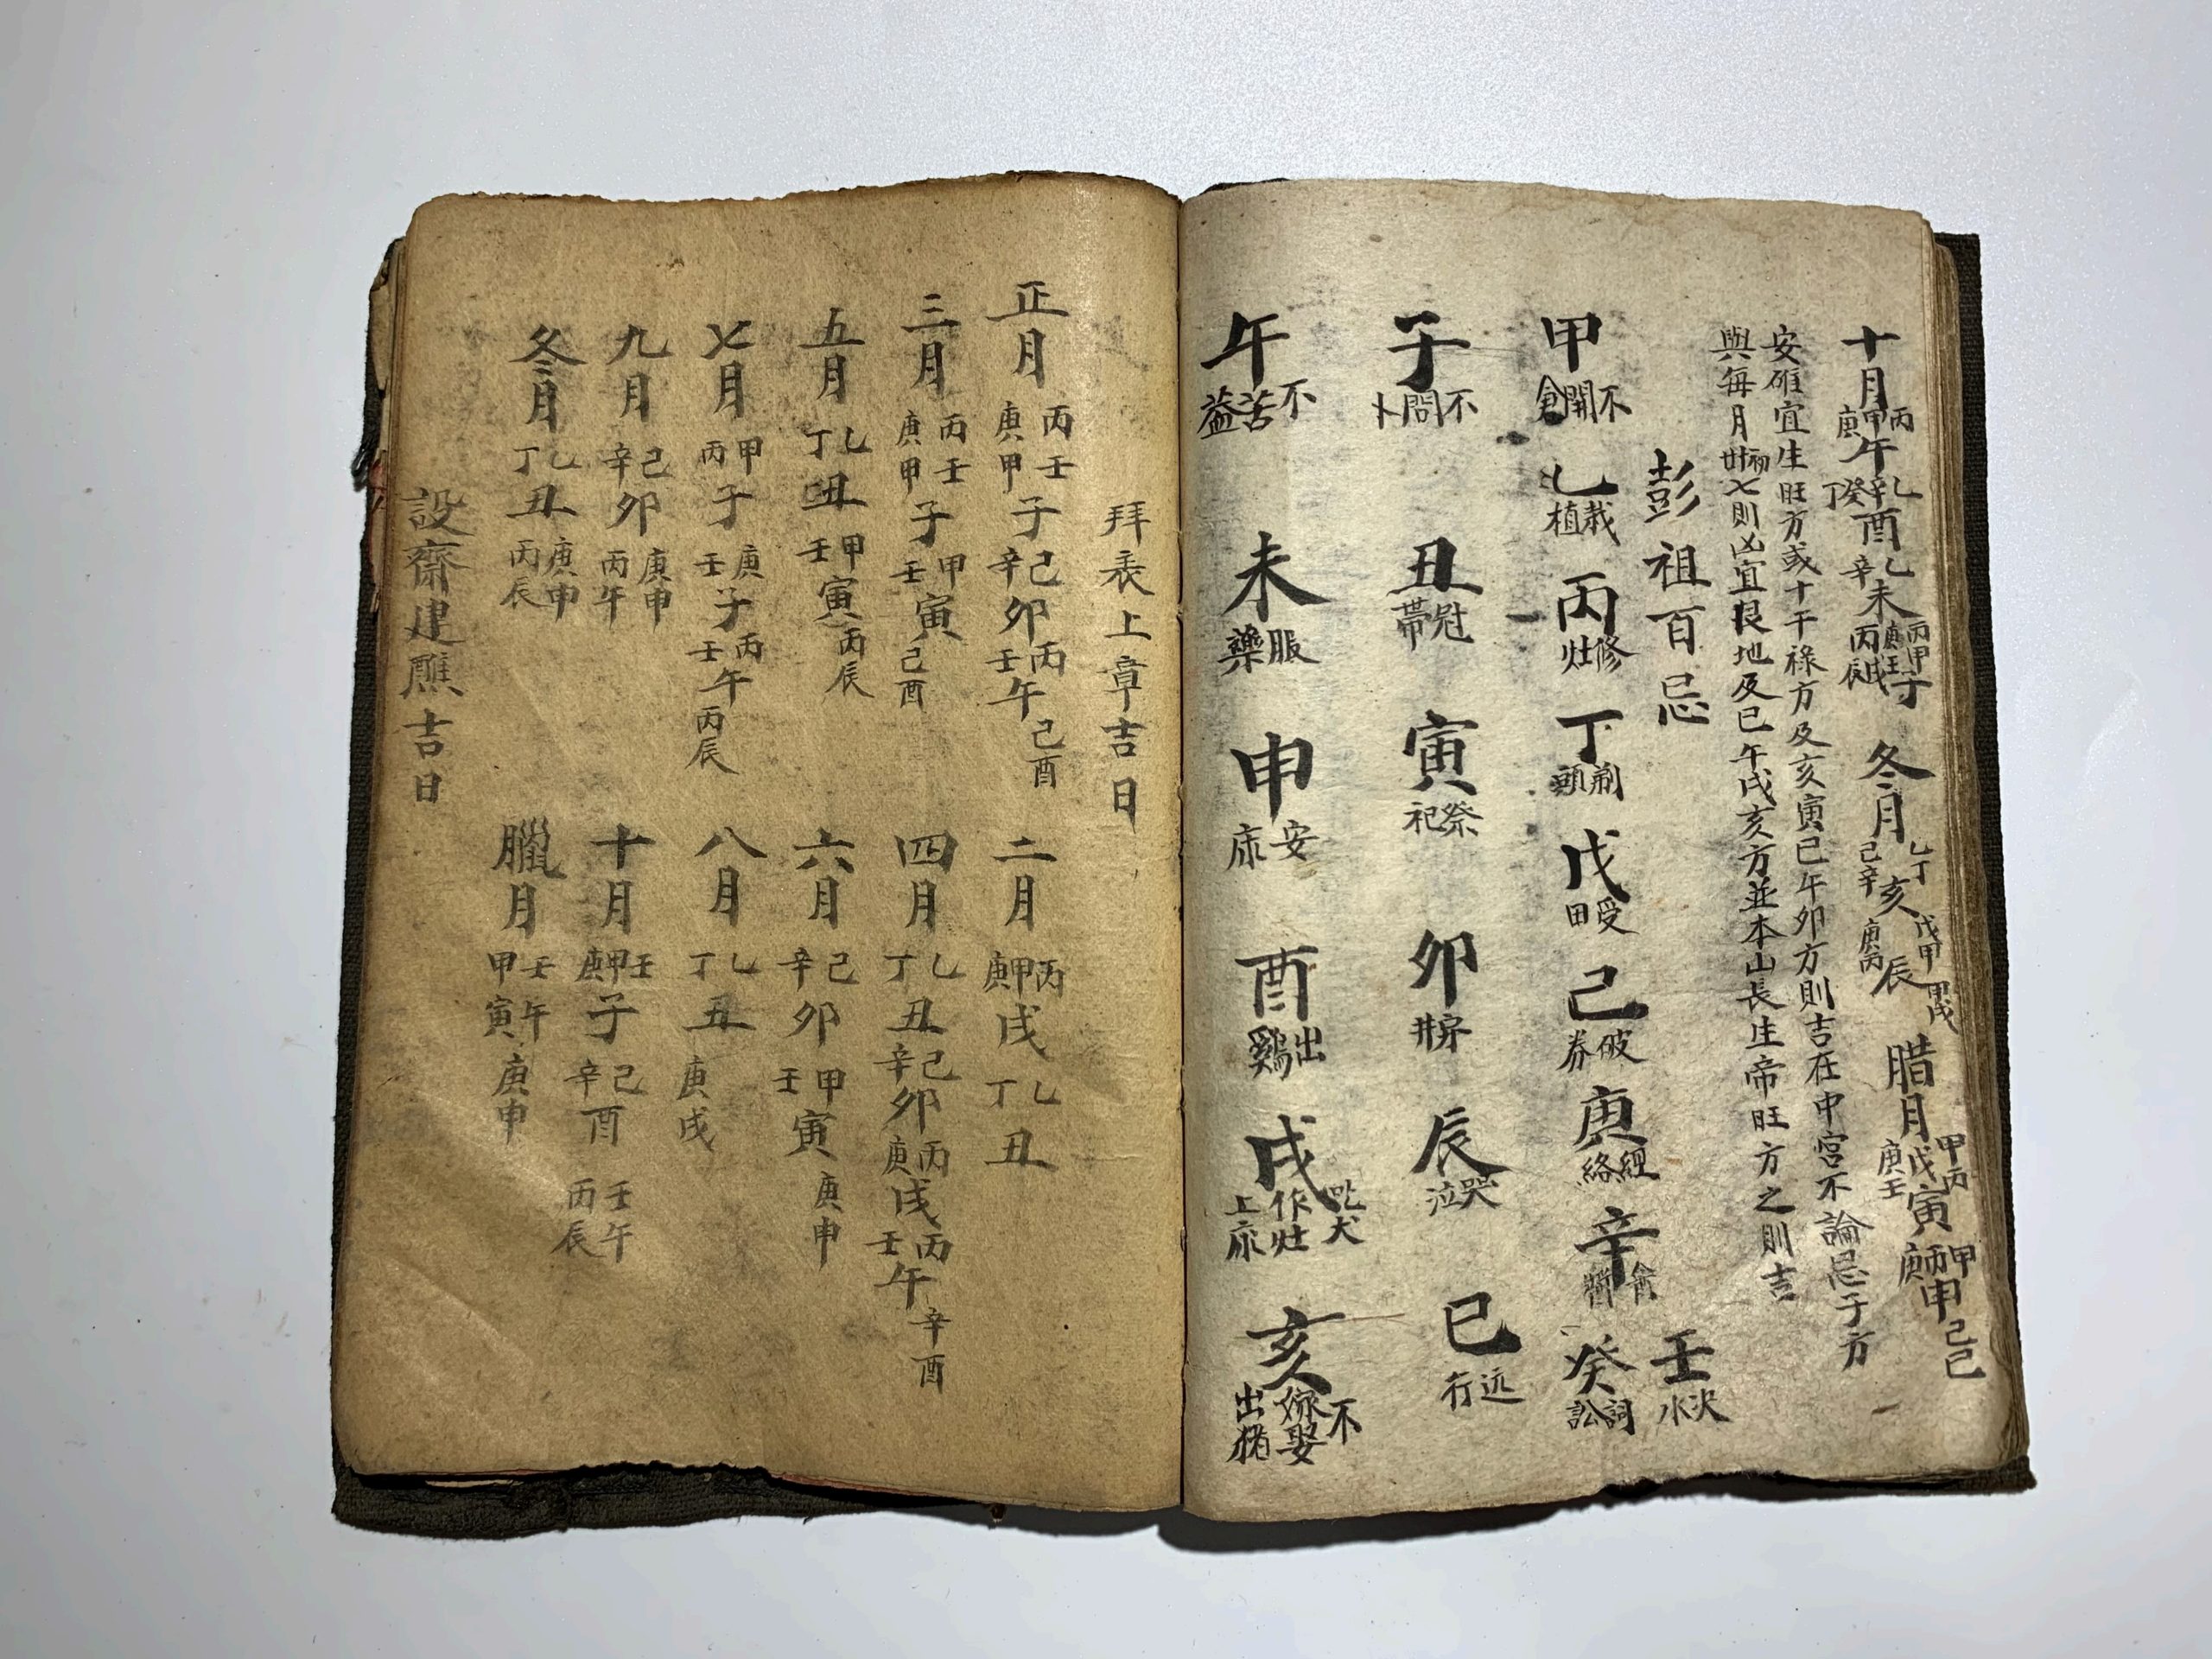 十月丙甲庚午乙辛癸丁酉乙辛未丙甲庚壬子丙辰 冬月乙丁己辛亥戊甲庚丙辰甲戌 腊月甲丙戊庚壬寅甲丙庚申己巳
安碓宜生旺方或十干祿方及亥寅巳午卯方則吉在中宮不論忌子方
與每月初廿七則凶宜艮地及巳午戌亥方並本山長生帝旺方之則吉
彭祖百忌
甲不開倉 乙栽植 丙修灶 丁剃頭 戊受田 己破券 庚經絡 辛 壬決水 癸詞訟
子不問卜 丑冠帶 寅祭祀 卯穿井 辰哭泣 巳远行
午不苫盖 未服藥 申安床 酉出鷄 戌吃犬作灶上床 亥不嫁娶出猪
拜表上章吉日
正月丙壬庚甲子己辛卯丙壬午己酉 二月丙甲庚戌乙丁丑
三月丙壬庚甲子甲壬寅己酉 四月乙丁丑己辛卯丙庚戌丙壬午辛酉
五月乙丁丑甲壬寅丙辰 六月己辛卯甲壬寅庚申
七月甲丙子庚壬子丙壬午丙辰 八月乙丁丑庚戌
九月己辛卯庚申丙午 十月壬甲庚子己辛酉壬午丙辰
冬月乙丁丑庚申丙辰 臘月壬午甲寅庚申
設齋建醮吉日